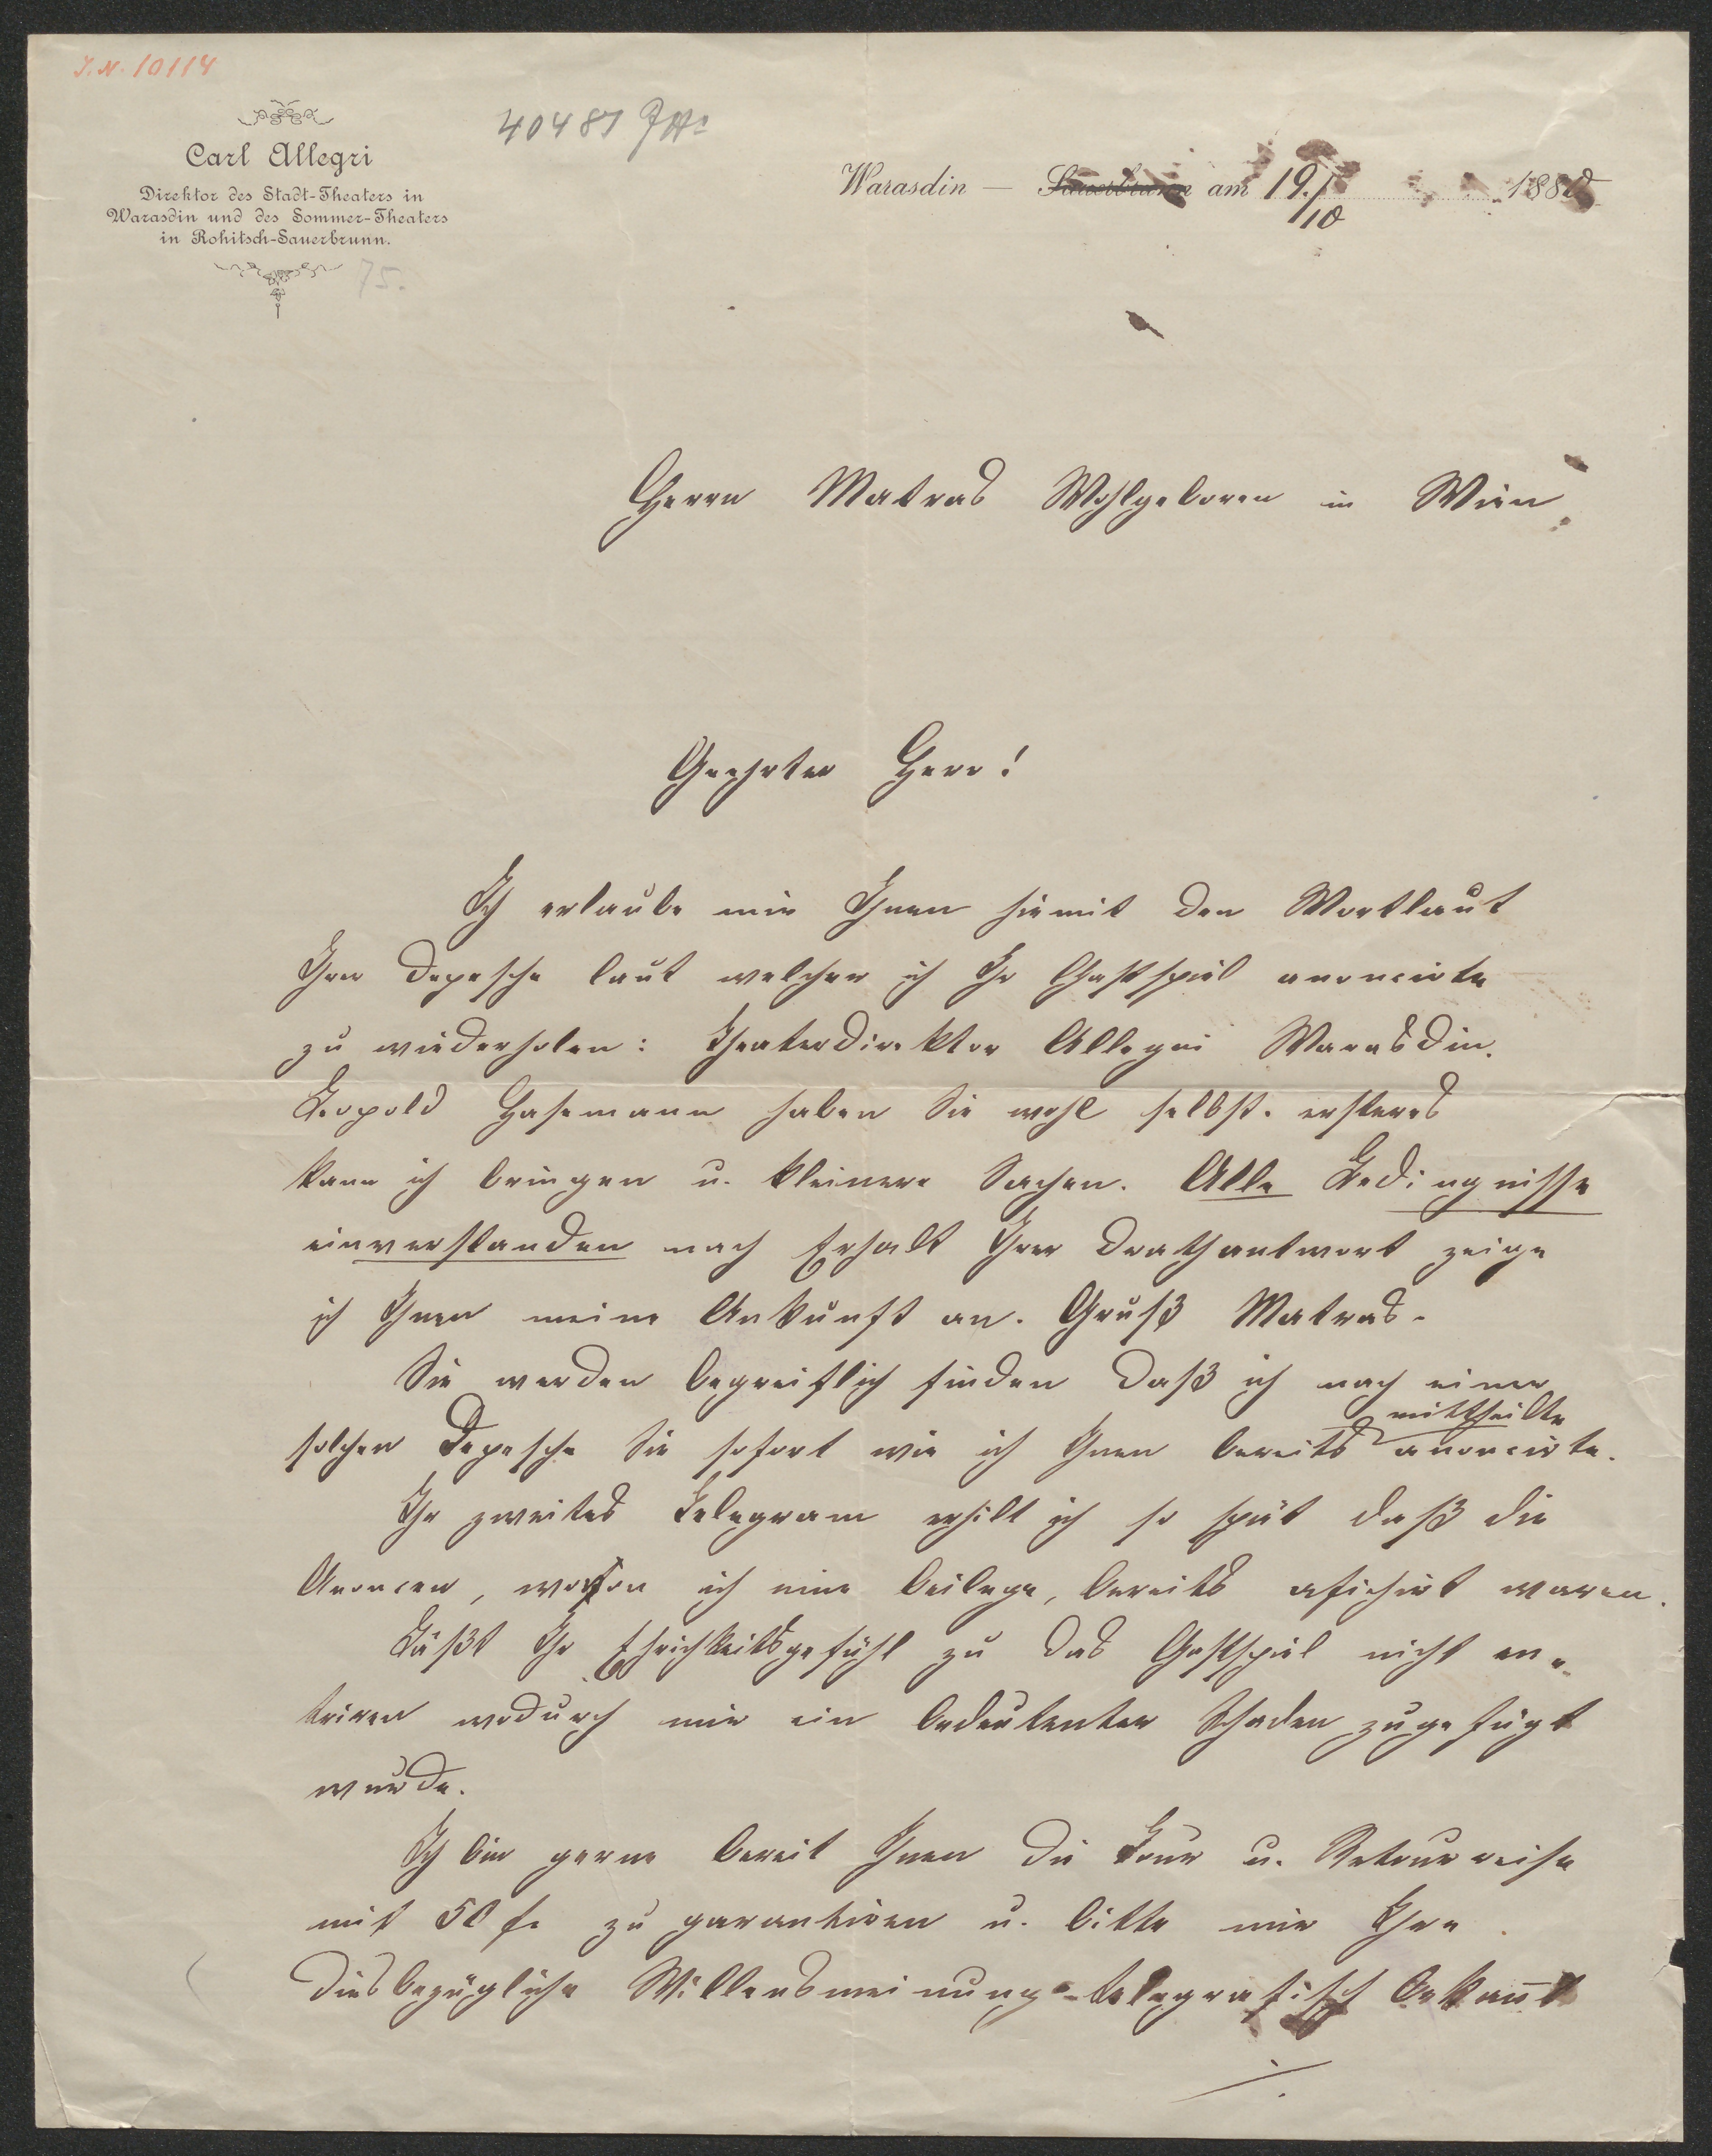 I.N. 10114
40487
Carl Allegri
Direktor des Stadt-Theaters in
Warasdin und des Sommer-Theaters
in Rohitsch-Sauerbrunn.
75.
Warasdin — Sauerbrunn am 19./10 1880
Herrn Matras Wohlgeboren in Wien
Geehrter Herr!
Ich erlaube mir Ihnen hiemit den Wortlaut
Ihrer Depesche laut welcher ich Ihr Gastspiel anoncirte
zu wiederholen: Theaterdirektor Allegri Warasdin.
Leopold Hasemann haben Sie wohl selbst. ersteres
kann ich bringen u. kleinere Sachen. Alle Bedingnisse
einverstanden nach Erhalt Ihrer Drathantwort zeige
ich Ihnen meine Ankunft an. Gruß Matras.
Sie werden begreiflich finden daß ich nach einer
mittheilte
solchen Depesche Sie sofort wie ich Ihnen bereits anoncirte.
Ihr zweites Telegram erhilt ich so spät daß die
Anoncen, wovon ich eine beilege, bereits afichirt waren.
Läßt Ihr Ehrichkeitsgefühl zu das Gastspiel nicht en-
triren wodurch mir ein bedeutenter Schaden zugefügt
wurde.
Ich bin gerne bereit Ihnen die Tour u. Retourreise
mit 50 f. zu garantiren u. bitte mir Ihre
diesbezügliche Willensmeinung telegrafisch bekannt
./.